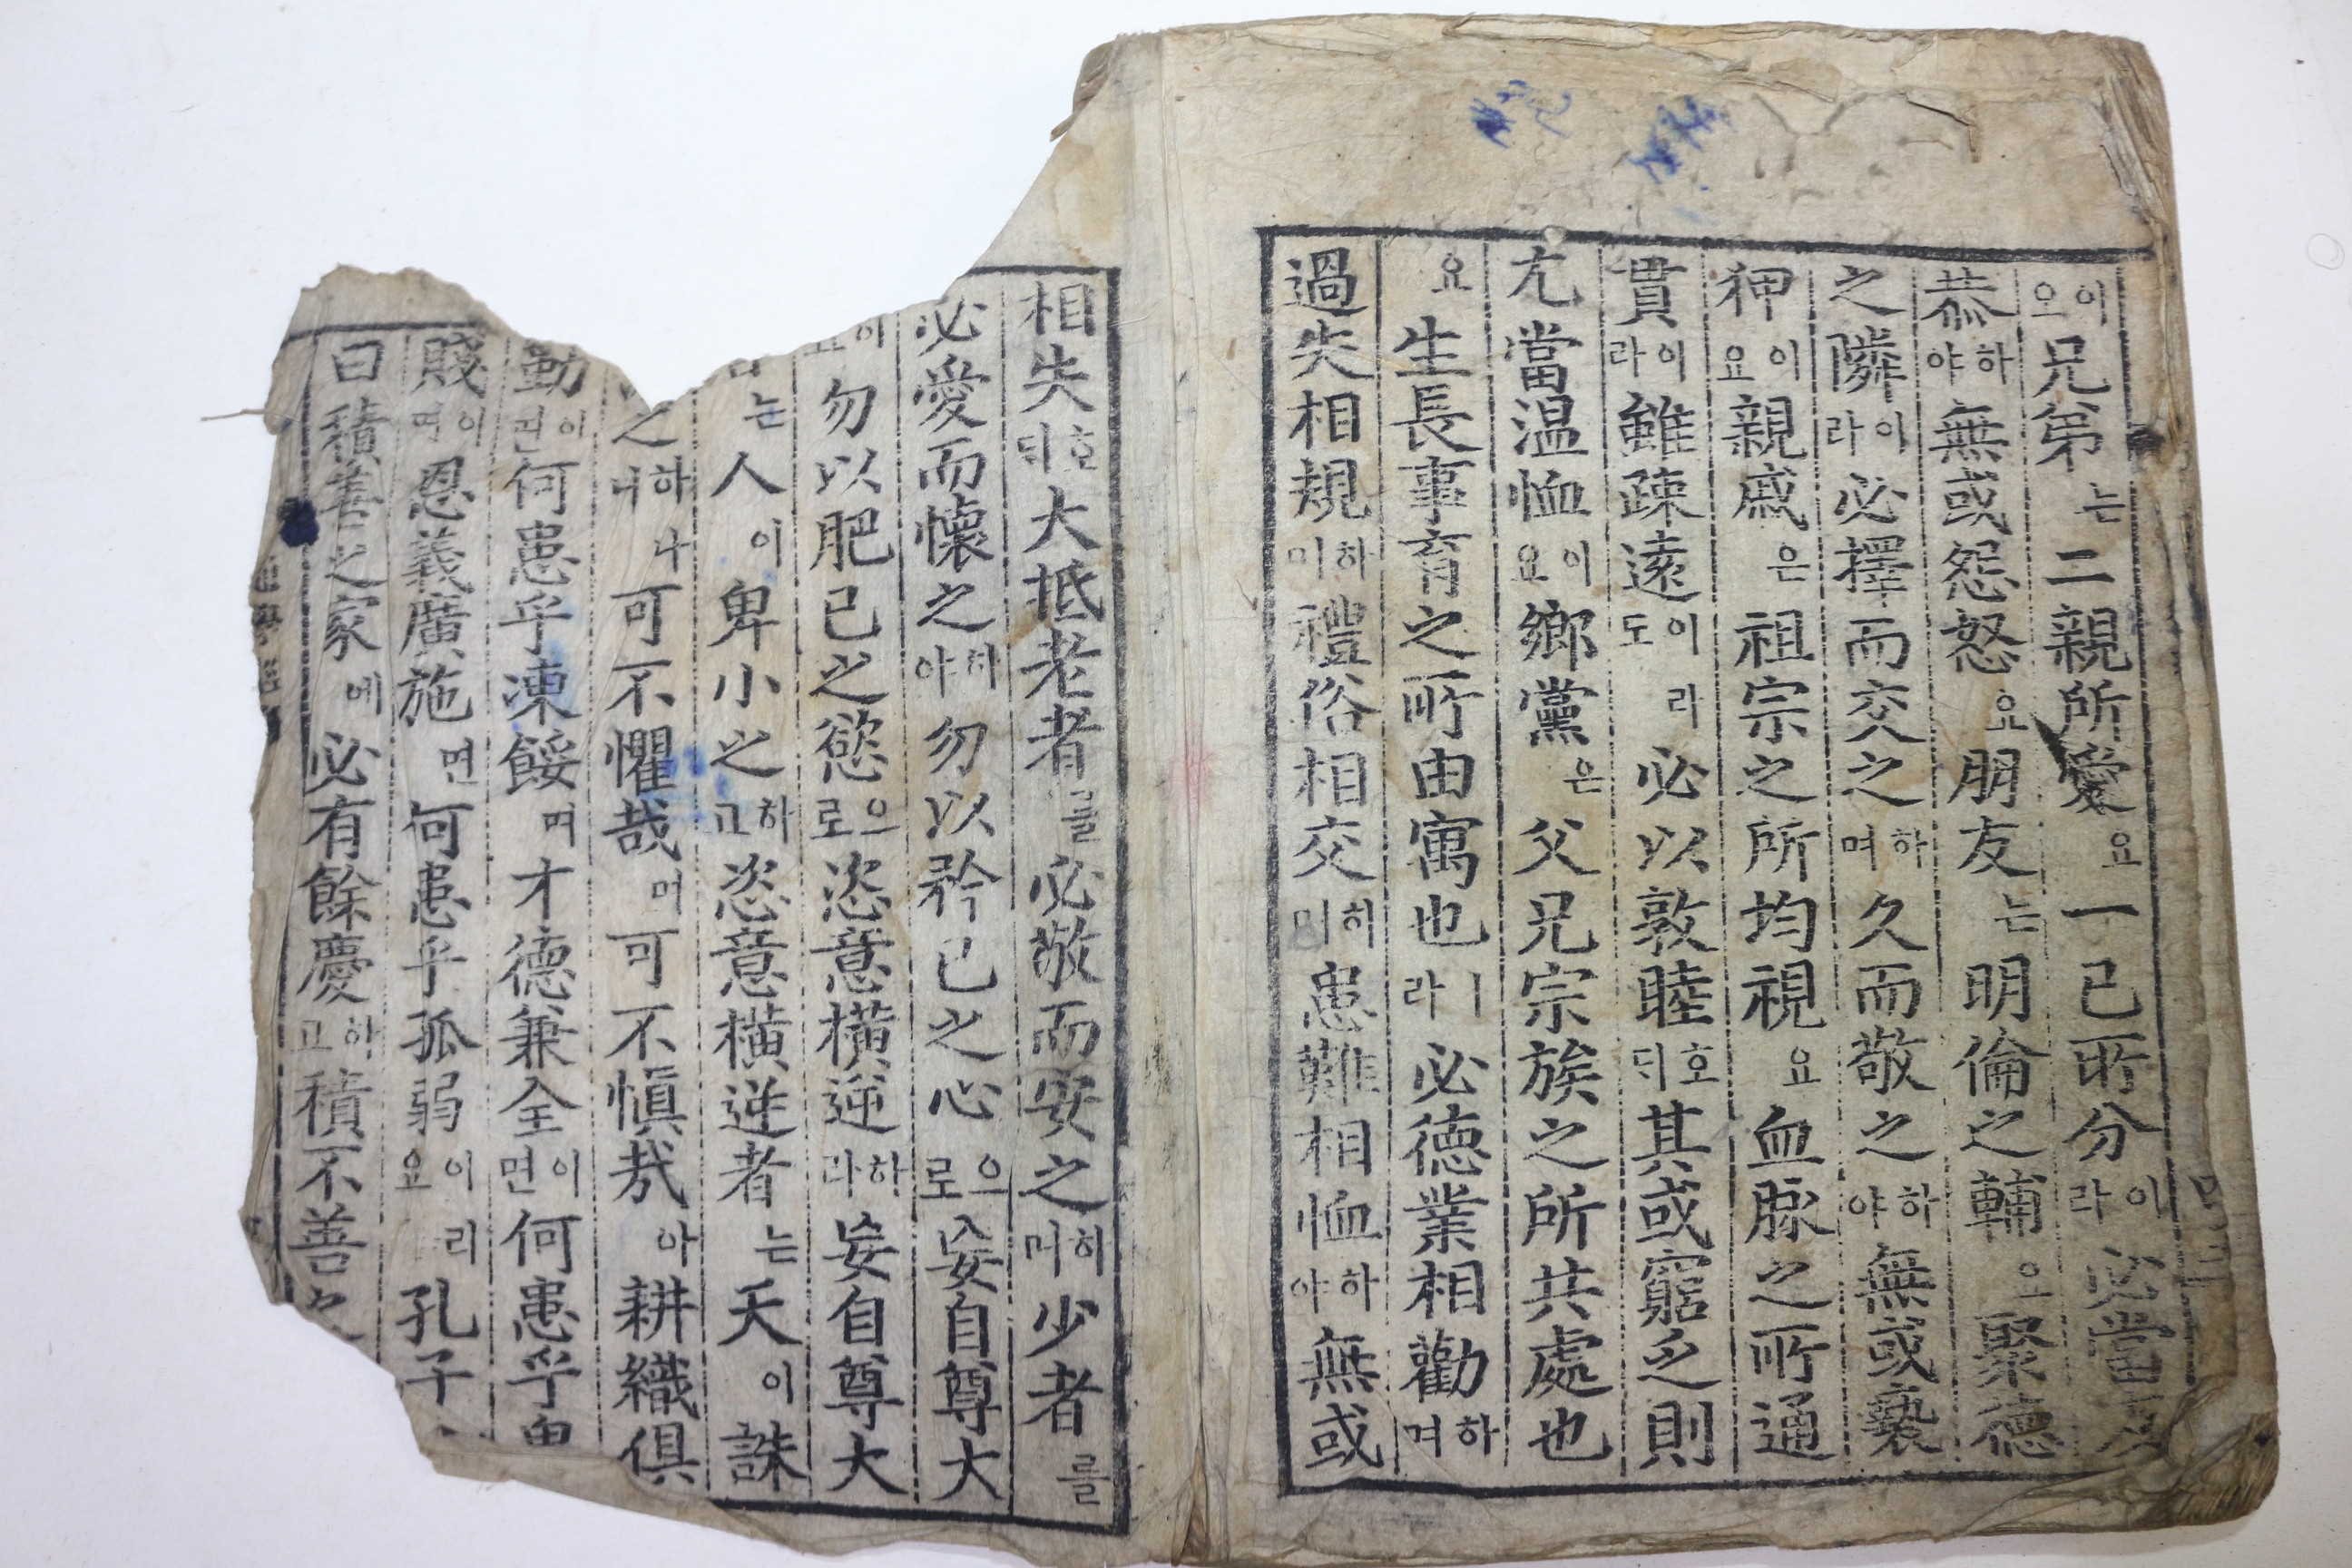 이오兄弟는二親所愛요一己所分이라必當友
恭하야無或怨怒요朋友는明倫之輔오聚德
之隣이라必擇而交之하며久而敬之하야無或褻
狎이요親戚은祖宗之所均視요血脉之所通
貫이라雖疎遠이라도必以敦睦호디其或窮乏則
尤當温恤이요鄕黨은父兄宗族之所共處也
요生長事育之所由寓也ㅣ라必德業相勸하며
過失相規하미禮俗相交하미患難相恤하야無或
相失호디大抵老者를必敬而安之하며少者를
必愛而懷之하야勿以矜己之心으로妄自尊大
이요勿以肥己之慾으로恣意橫逆하라妄自尊大
는人이卑小之하고恣意橫逆者는天이誅
之하나니可不懼哉며可不愼哉아耕織俱
勤이면何患乎凍餒며才德兼全이면何患乎卑
賤이며恩義廣施면何患乎孤弱이리요孔子
曰積善之家에必有餘慶하고積不善之